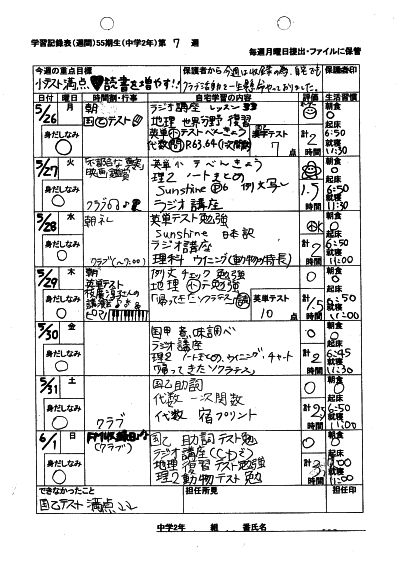 学習記録表(週間)55期生(中学2年)第 7 週
毎週月曜日提出・ファイルに保管
今週の重点目標
保護者から
保護者印
小テスト満点、♥読書を増やす!!
日付 曜日 時間割・行事 自宅学習の内容 評価 生活習慣
5/26 月
朝
ラジオ講座 レッスン33
地理 世界分野 復習
英単テストべんきょう
英単テスト
7点
計 2 時間
朝食
起床 6:50
就寝 11:30
身だしなみ
5/27 火
映画鑑賞
クラブ
理2 ノートまとめ
Sunshine P6 例文写し
ラジオ講座
計 1.5 時間
朝食
起床 6:50
就寝 11:30
身だしなみ
5/28 水
朝礼
クラブ(~7:00)
英単テスト勉強
Sunshine 日本訳
ラジオ講座
理科 ウイニング(動物の特長)
計 2 時間
朝食
起床 6:50
就寝 11:00
身だしなみ
5/29 木
朝
英単テスト
ピアノ
例文チェック勉強
「帰ってきたソクラテス」
英単テスト
10点
計 1.5 時間
朝食
起床 6:50
就寝 11:00
身だしなみ
5/30 金
国甲 意味調べ
ラジオ講座
理2 ノートまとめ、ウイニング・チャート
「帰ってきたソクラテス」
計 2 時間
朝食
起床 6:45
就寝 11:30
身だしなみ
5/31 土
クラブ
国乙助詞
代数 一次関数
代数 宿プリント
計 2.5 時間
朝食
起床 6:50
就寝
身だしなみ
6/1 日
(クラブ)
国乙 助詞テスト勉
ラジオ講座
地理 復習テスト勉強
理2 動物テスト勉
計 3 時間
朝食
起床
就寝
身だしなみ
できなかったこと
担任所見
担任印
国乙テスト 満点
中学2年 組 番氏名